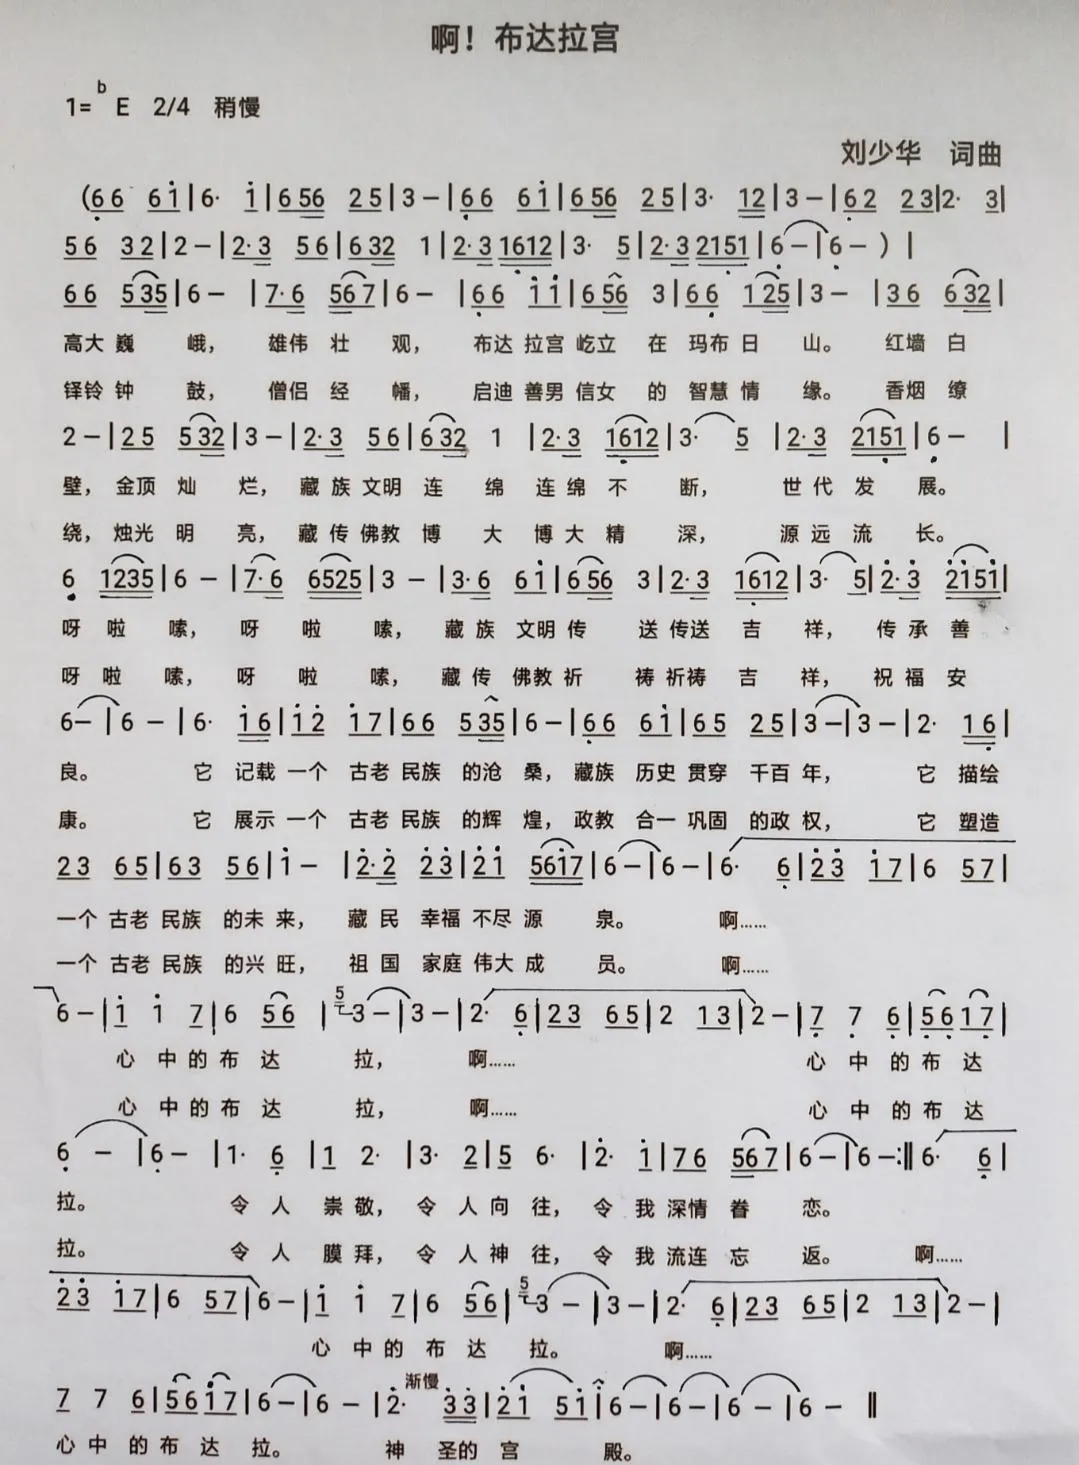 啊！布达拉宫
1=ᵇE 2/4 稍慢
刘少华 词曲
(66 6i|6· i|656 25|3－|66 6i|656 25|3· 12|3－|62 23|2· 3|
56 32|2－|2·3 56|632 1|2·3 1612|3· 5|2·3 2151|6－|6－)|
66 535|6－|7·6 567|6－|66 ii|656 3|66 125|3－|36 632|
高大巍 峨， 雄伟 壮 观， 布达 拉宫 屹立 在 玛布 日 山。 红墙 白
铎铃钟 鼓， 僧侣 经 幡， 启迪 善男 信女 的 智慧 情 缘。 香烟 缭
2－|25 532|3－|2·3 56|632 1|2·3 1612|3· 5|2·3 2151|6－|
壁， 金顶 灿 烂， 藏 族 文明 连 绵 连 绵 不 断， 世 代 发 展。
绕， 烛光 明 亮， 藏 传 佛教 博 大 博 大 精 深， 源 远 流 长。
6 1235|6－|7·6 6525|3－|3·6 6i|656 3|2·3 1612|3· 5|2·3 2151|
呀 啦 嗦， 呀 啦 嗦， 藏 族 文明 传 送 传送 吉 祥， 传 承 善
呀 啦 嗦， 呀 啦 嗦， 藏 传 佛教 祈 祷 祈祷 吉 祥， 祝 福 安
6－|6－|6· i6|i2 i7|66 535|6－|66 6i|65 25|3－|3－|2· 16|
良。 它 记载 一个 古老 民族 的沧 桑， 藏族 历史 贯穿 千百 年， 它 描绘
康。 它 展示 一个 古老 民族 的辉 煌， 政教 合一 巩固 的政 权， 它 塑造
23 65|63 56|i－|2·2 23|2i 5617|6－|6－|6· 6|23 i7|6 57|
一个 古老 民族 的未 来， 藏 民 幸福 不尽 源 泉。 啊……
一个 古老 民族 的兴 旺， 祖 国 家庭 伟大 成 员。 啊……
6－|i i 7|6 56|⁵3－|3－|2· 6|23 65|2 13|2－|7 7 6|56 17|
心 中 的 布 达 拉， 啊…… 心 中 的 布 达
心 中 的 布 达 拉， 啊…… 心 中 的 布 达
6 －|6－|1· 6|1 2·|3· 2|5 6·|2· i|76 567|6－|6－:‖6· 6|
拉。 令 人 崇 敬， 令 人 向 往， 令 我 深情 眷 恋。
拉。 令 人 膜 拜， 令 人 神 往， 令 我 流连 忘 返。 啊……
23 i7|6 57|6－|i i 7|6 56|⁵3－|3－|2· 6|23 65|2 13|2－|
心 中 的 布 达 拉。 啊……
渐慢
7 7 6|56 i7|6－|6－|2· 33|2i 5i|6－|6－|6－|6－‖
心 中 的 布 达 拉。 神 圣的 宫 殿。